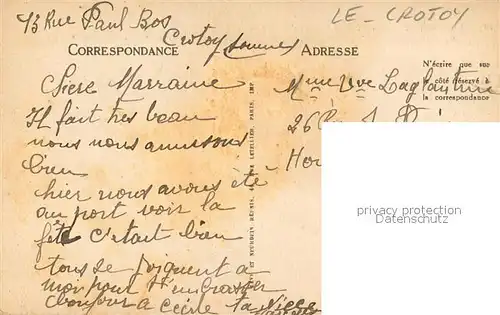 13 Rue Paul Bos
Crotoy Somme
LE - CROTOY
CORRESPONDANCE
ADRESSE
N'écrire que sur
le côté réservé à
la correspondance
Chere Marraine
Il fait tres beau
nous nous amusons
bien
hier nous avons été
au port voir la
fête c'etait bien
tous se joignent a
moi pour t'embrasser
bonjour a Cecile ta Niece
Mme Vve
26 R
Hou
privacy protection
Datenschutz